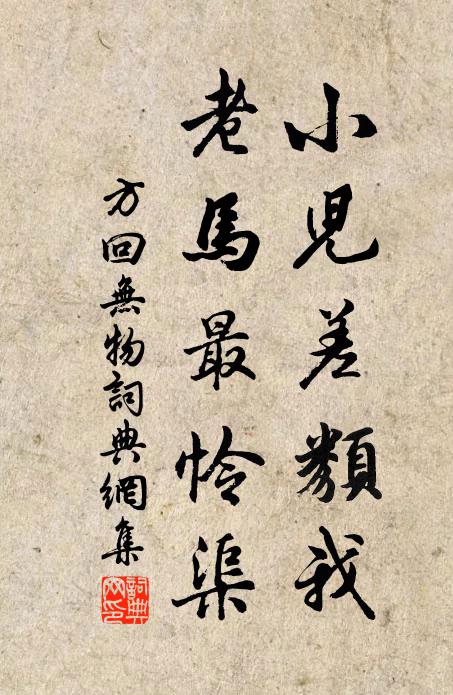 小兒差類我
老馬最怜渠
方回無物詞典網集
詞典
网印